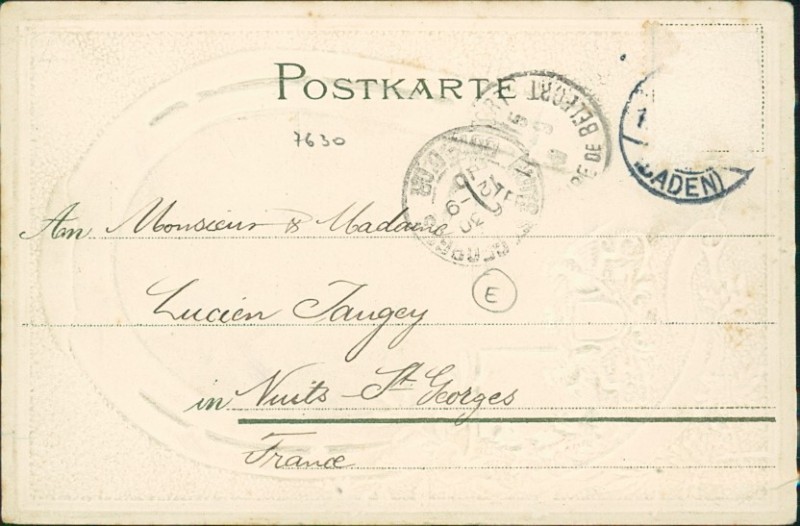 POSTKARTE
7630
DE BELFORT
(BADEN)
An Monsieur & Madame
E
Lucien Jaugey
in Nuits St. Georges
France